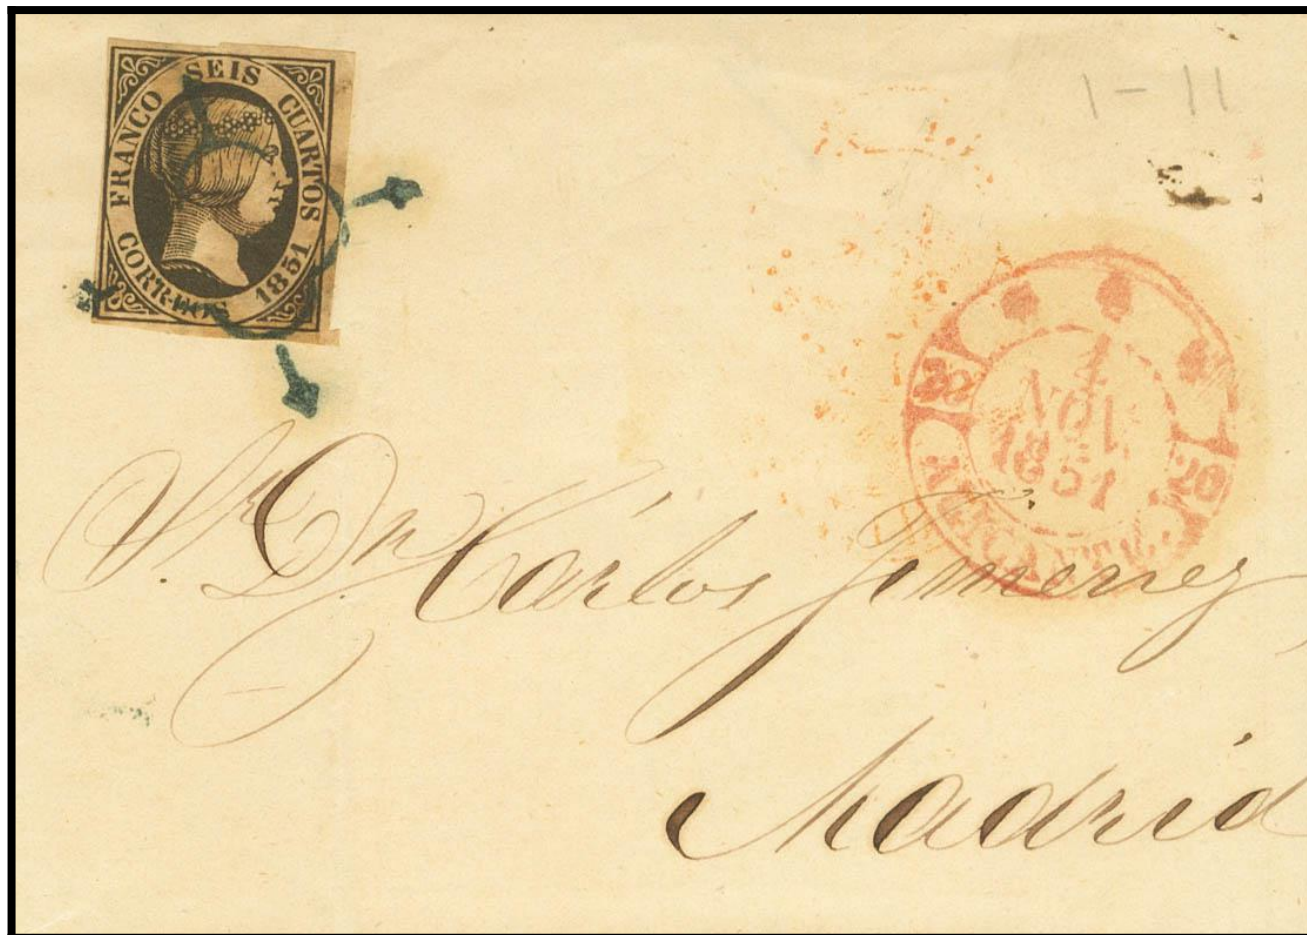 FRANCO SEIS CUARTOS
CORREOS 1851
1-11
1
NOV.
1851
20
ALICANTE.
20
Sr. Dn Cárlos Jimenez
Madrid